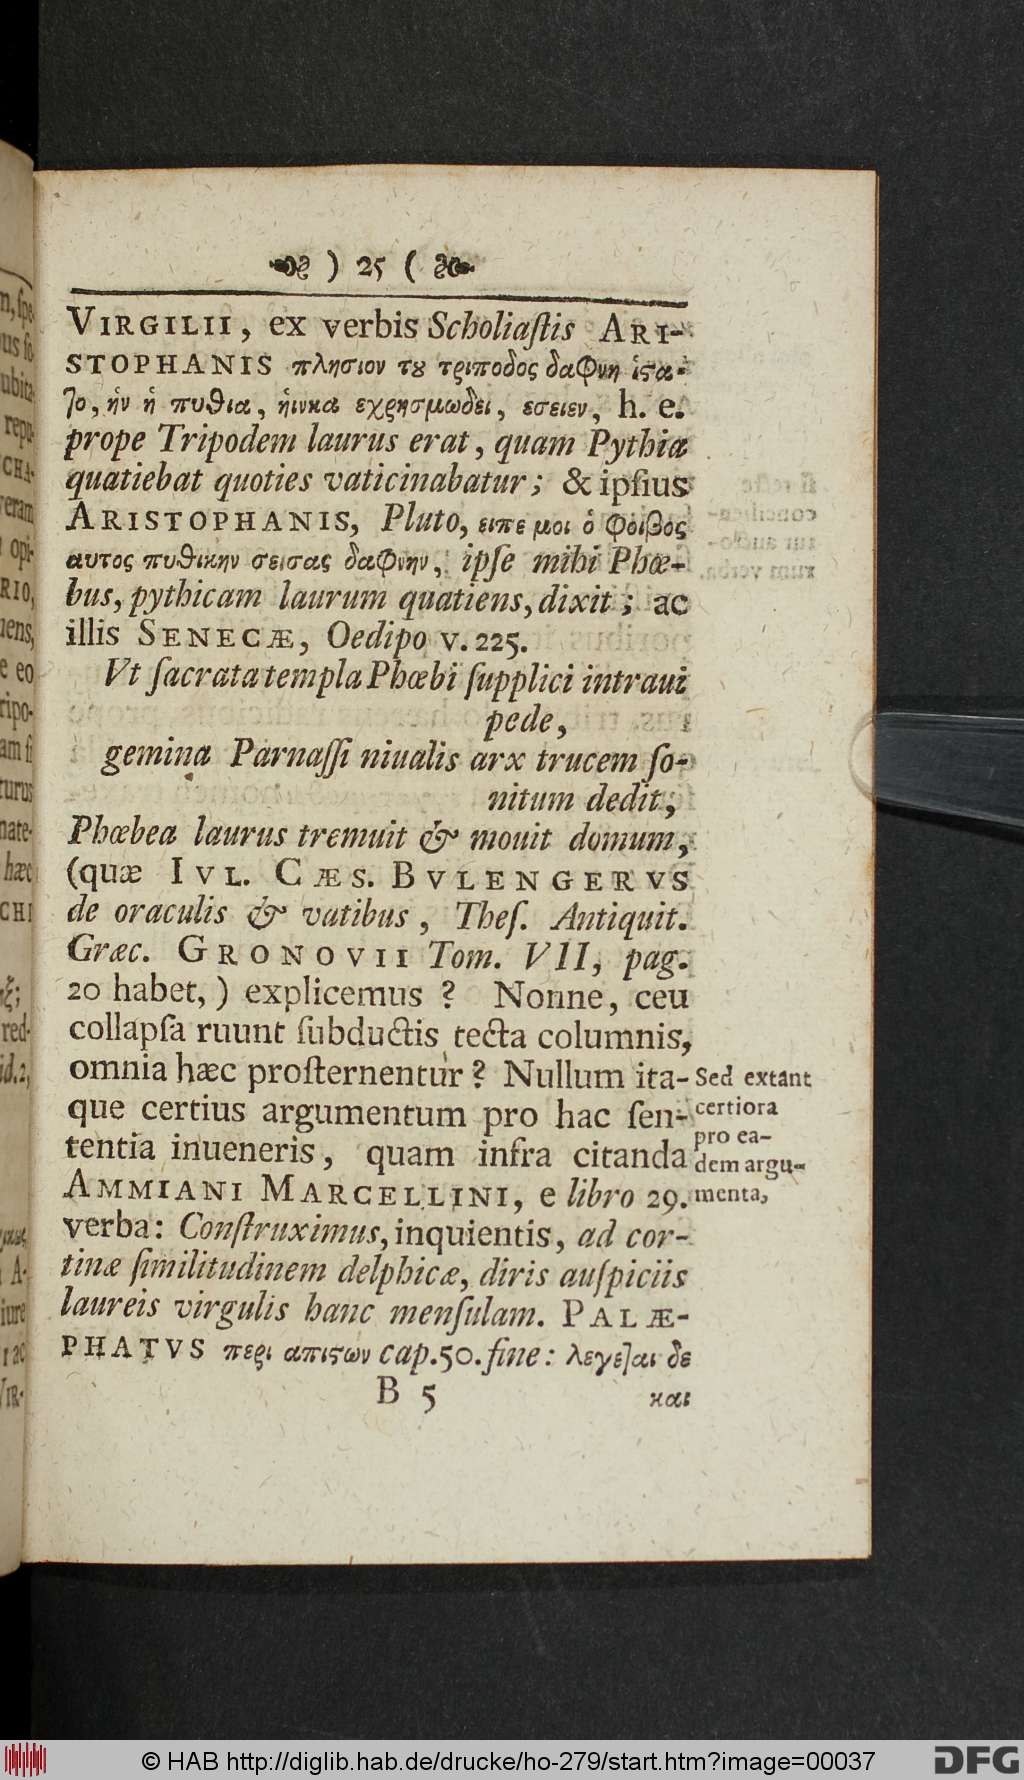 ) 25 (
VIRGILII, ex verbis Scholiaſtis ARI-
STOPHANIS πλησιον τȣ τριποδος δαφνη ἱςα-
το, ἡν ἡ πυθια, ἡινκα εχρησμωδει, εσειεν, h. e.
prope Tripodem laurus erat, quam Pythia
quatiebat quoties vaticinabatur; & ipſius
ARISTOPHANIS, Pluto, ειπε μοι ὁ φοιβος
αυτος πυθικην σεισας δαφνην, ipſe mihi Phœ-
bus, pythicam laurum quatiens, dixit; ac
illis SENECÆ, Oedipo v. 225.
Vt ſacrata templa Phœbi ſupplici intraui
pede,
gemina Parnaſſi niualis arx trucem ſo-
nitum dedit,
Phœbea laurus tremuit & mouit domum,
(quæ IVL. CÆS. BVLENGERVS
de oraculis & vatibus, Theſ. Antiquit.
Græc. GRONOVII Tom. VII, pag.
20 habet,) explicemus? Nonne, ceu
collapſa ruunt ſubductis tecta columnis,
omnia hæc proſternentur? Nullum ita-
que certius argumentum pro hac ſen-
tentia inueneris, quam infra citanda
AMMIANI MARCELLINI, e libro 29.
verba: Conſtruximus, inquientis, ad cor-
tinæ ſimilitudinem delphicæ, diris auſpiciis
laureis virgulis hanc menſulam. PALÆ-
PHATVS περι απιςων cap. 50. fine: λεγεται δε
B 5
και
Sed extant
certiora
pro ea-
dem argu-
menta,
© HAB http://diglib.hab.de/drucke/ho-279/start.htm?image=00037
DFG